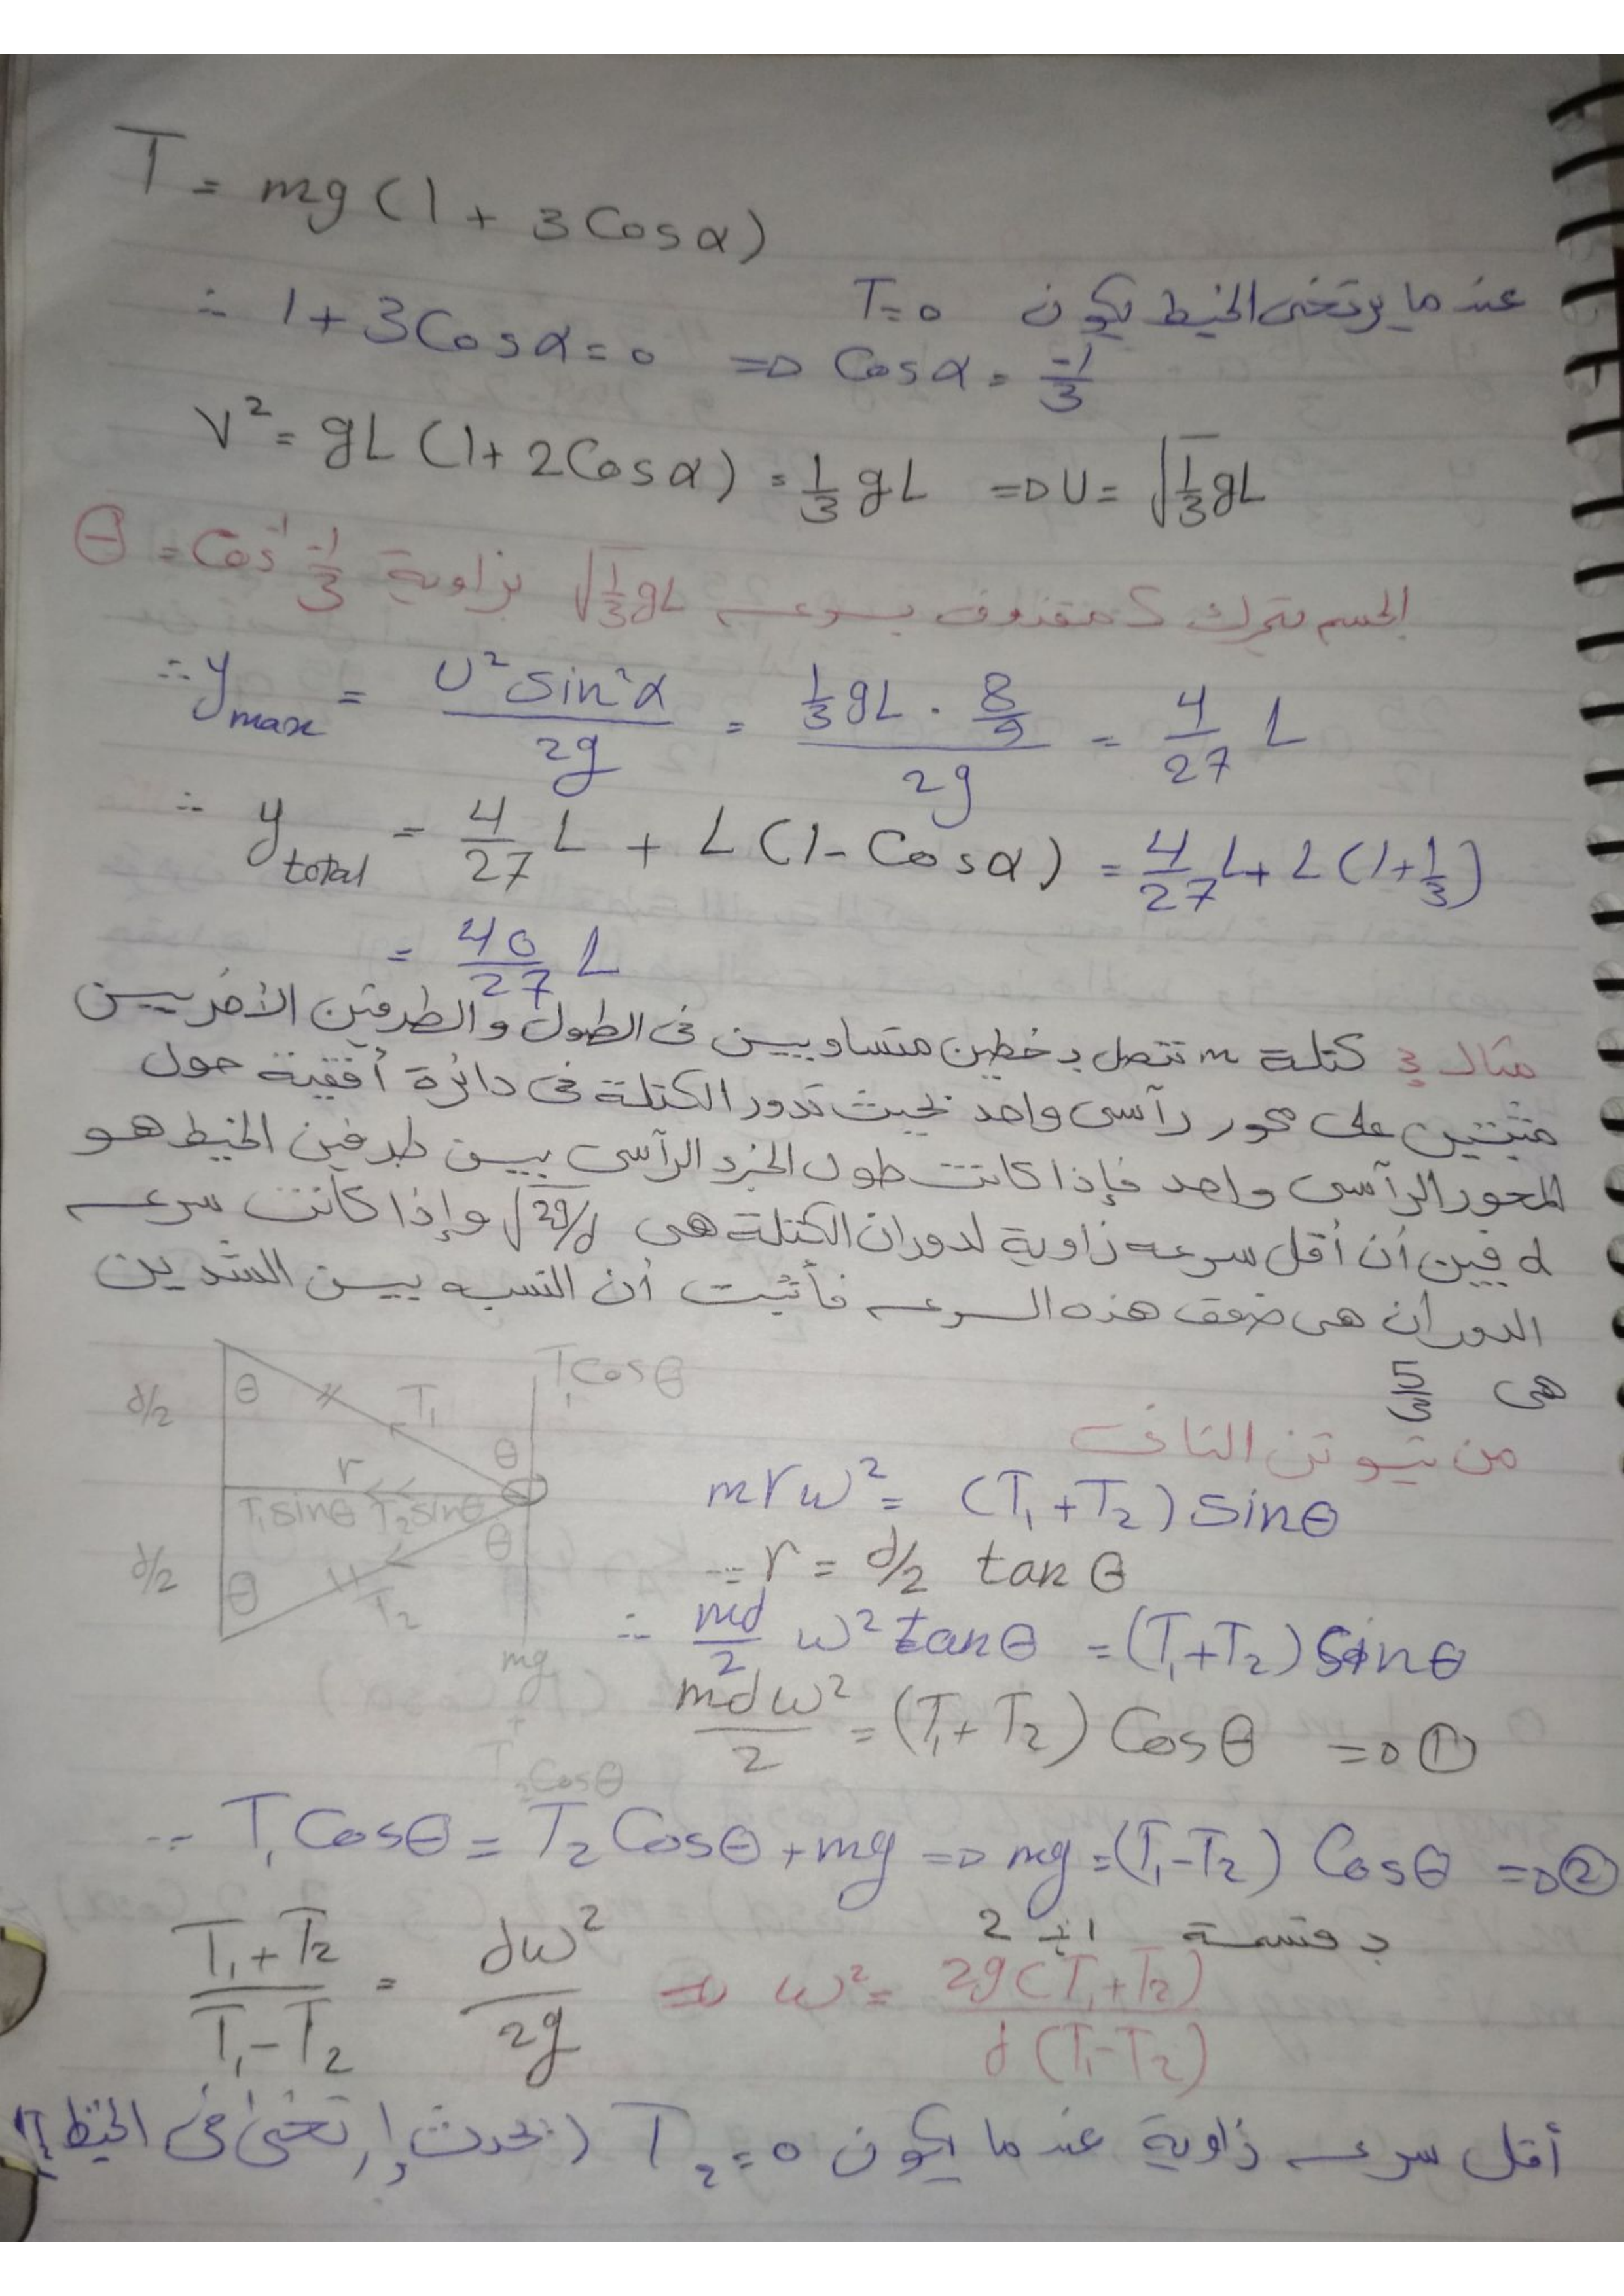 T = mg (1 + 3 Cosα)
عندما يرتخى الخيط يكون T=0
∴ 1 + 3 Cosα = 0 ⇒ Cosα = -1/3
V² = gL (1 + 2 Cosα) = 1/3 gL ⇒ U = √(1/3 gL)
الجسم يتحرك كمقذوف بسرعه √(1/3 gL) بزاوية θ = Cos⁻¹ -1/3
∴ y max = U² Sin²α / 2g = (1/3 gL · 8/9) / 2g = 4/27 L
∴ y total = 4/27 L + L (1 - Cosα) = 4/27 L + L (1 + 1/3)
= 40/27 L
مثال 3 كتلة m تتصل بخطين متساويين فى الطول والطرفين الأخريين
مثبتين على محور رآسى واحد بحيث تدور الكتلة فى دائرة أفقية حول
المحور الرآسى واحد فإذا كانت طول الجزء الرآسى بين طرفين الخيط هو
d فبين أن أقل سرعه زاوية لدوران الكتلة هى √(2g/d) وإذا كانت سرعه
الدوران هى ضعف هذه السرعه فأثبت أن النسبه بين الشدين
هى 5/3
d/2 θ T₁ T₁ Cosθ
θ
r
T₁ sinθ T₂ sinθ
d/2 θ T₂ θ
mg
+
T₂ Cosθ
من نيوتن الثانى
m r ω² = (T₁ + T₂) Sinθ
∵ r = d/2 tan θ
∴ md/2 ω² tanθ = (T₁ + T₂) Sinθ
mdω²/2 = (T₁ + T₂) Cosθ ⇒ ①
∵ T₁ Cosθ = T₂ Cosθ + mg ⇒ mg = (T₁ - T₂) Cosθ ⇒ ②
بقسمة 1 ÷ 2
(T₁ + T₂)/(T₁ - T₂) = dω²/2g ⇒ ω² = 2g (T₁ + T₂) / d (T₁ - T₂)
أقل سرعه زاوية عندما يكون T₂ = 0 (يحدث إرتخى فى الخيط